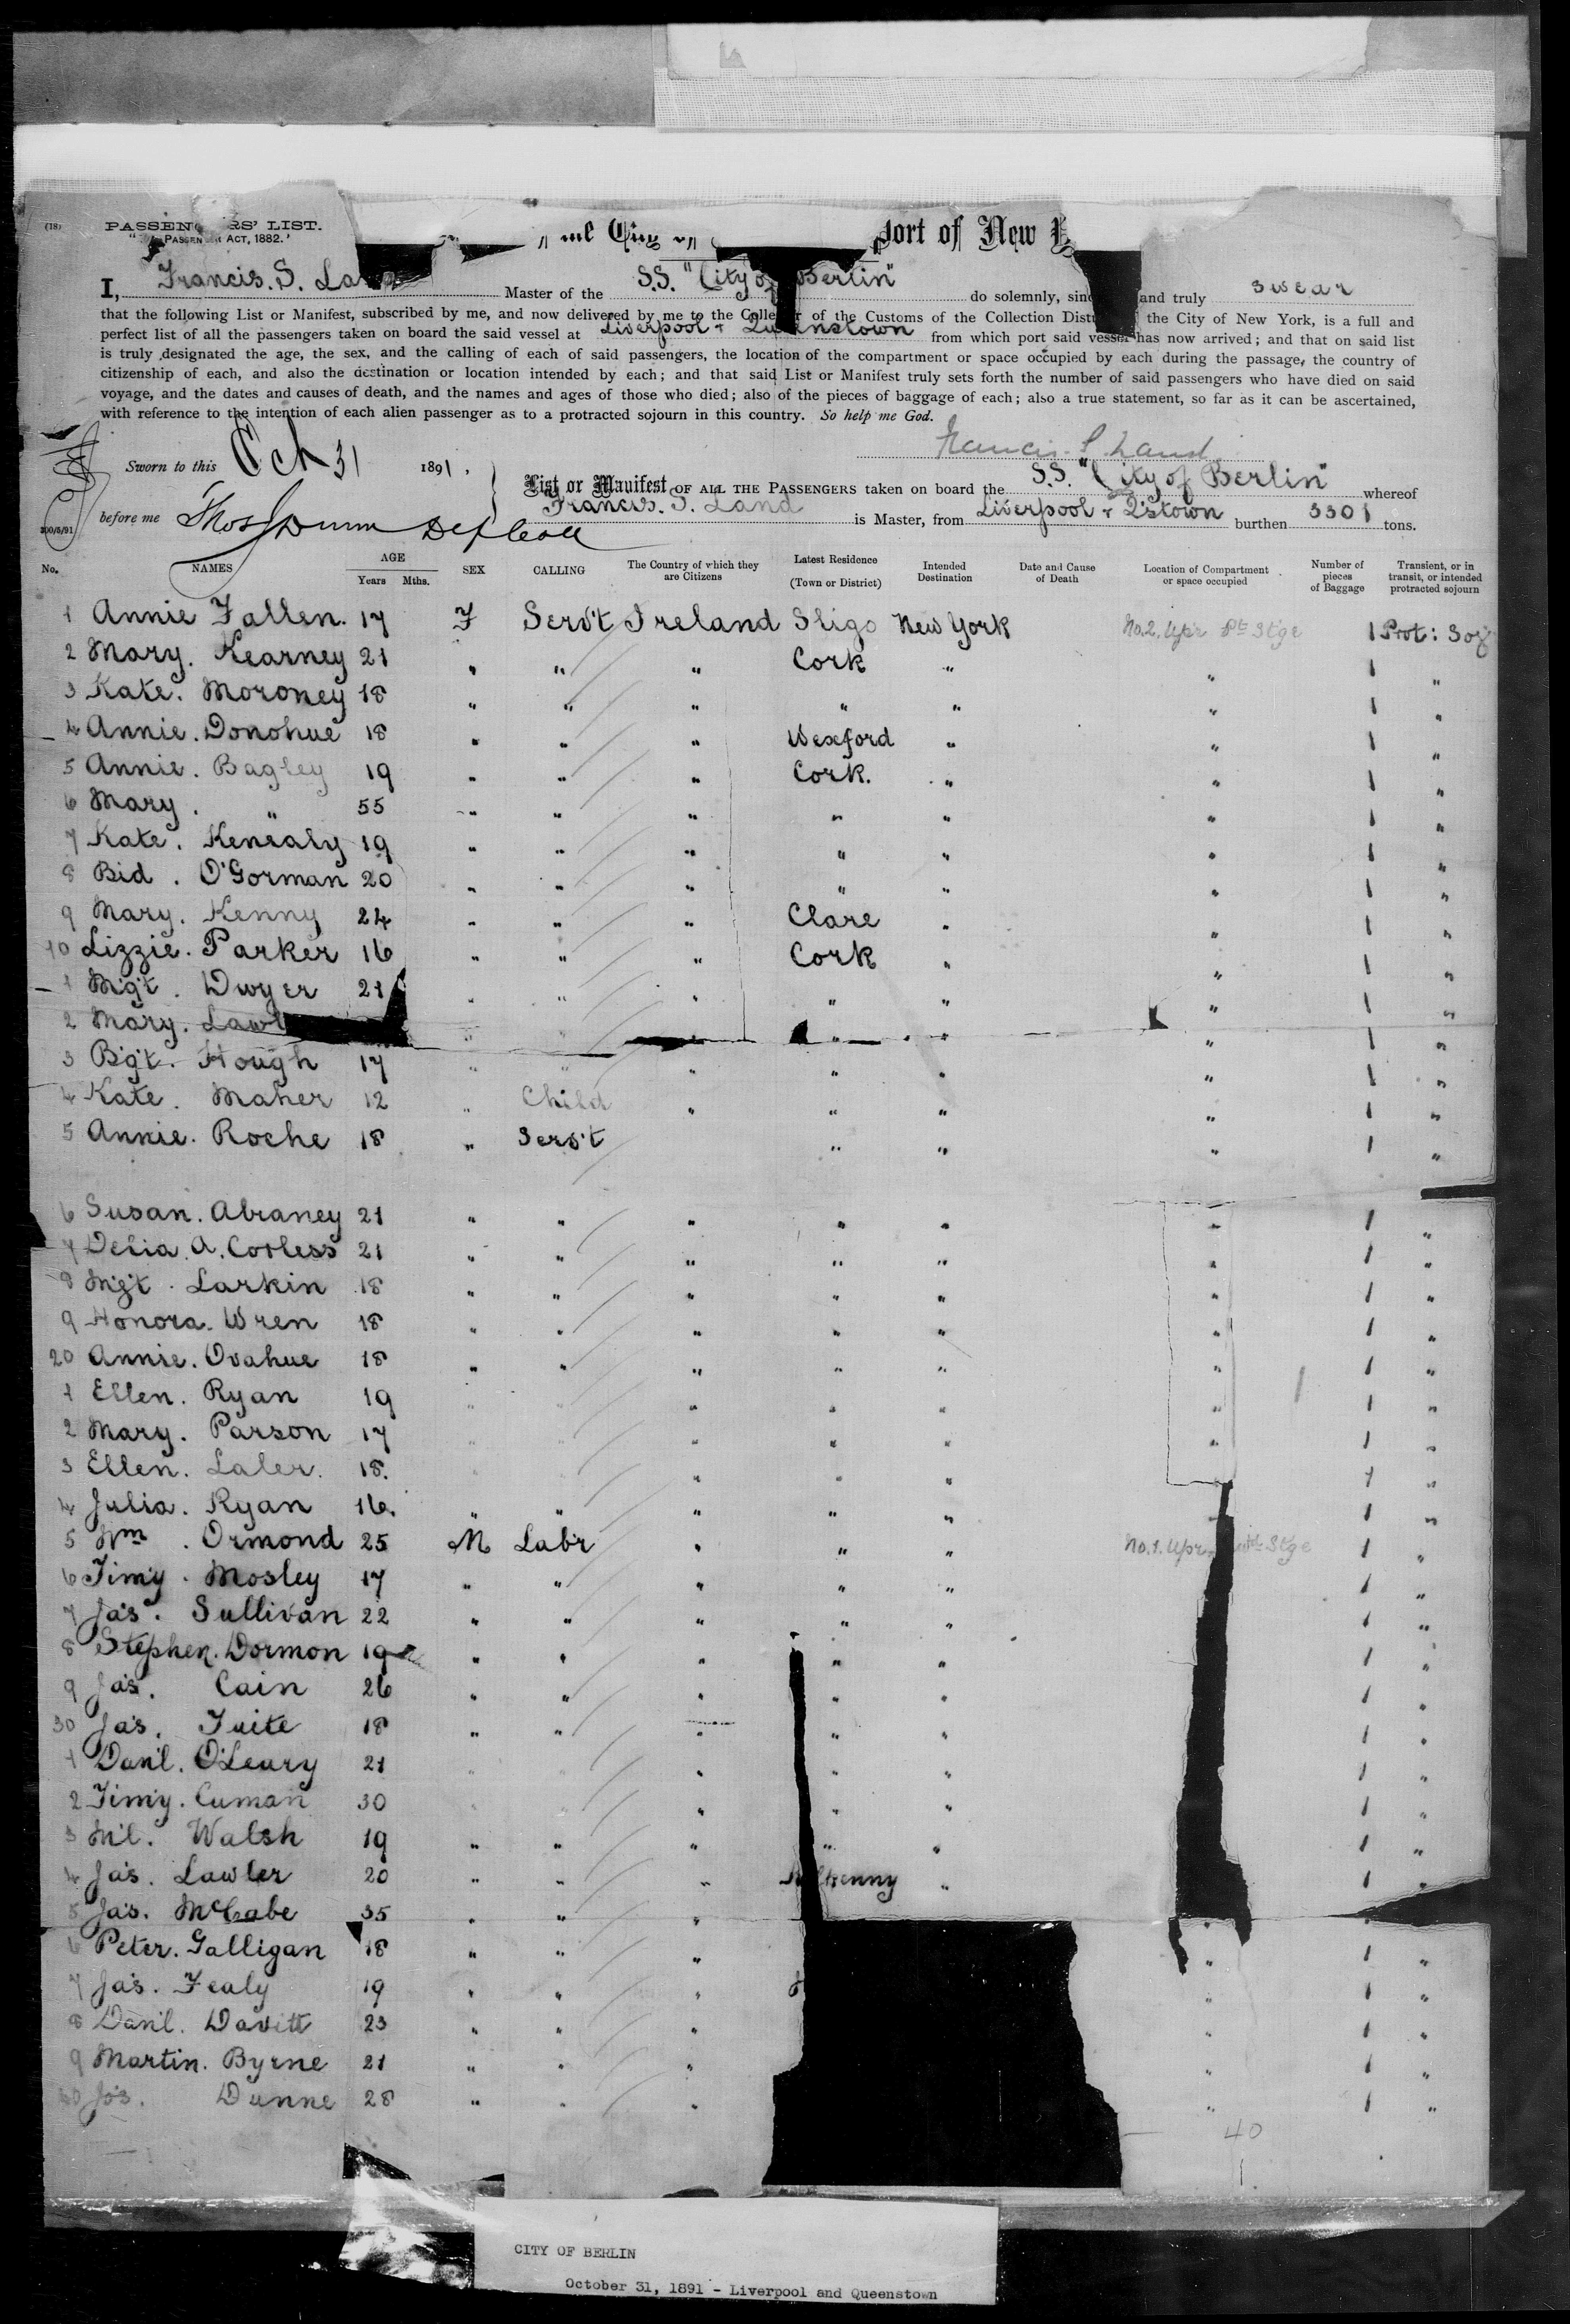 (18)
PASSENG RS' LIST.
" PASSEN ACT, 1882."
City port of New
I, Francis. S. La Master of the S.S. "City of Berlin" do solemnly, sinc and truly swear
that the following List or Manifest, subscribed by me, and now delivered by me to the Colle r of the Customs of the Collection Dist the City of New York, is a full and
perfect list of all the passengers taken on board the said vessel at Liverpool & Qu nstown from which port said vessel has now arrived; and that on said list
is truly designated the age, the sex, and the calling of each of said passengers, the location of the compartment or space occupied by each during the passage, the country of
citizenship of each, and also the destination or location intended by each; and that said List or Manifest truly sets forth the number of said passengers who have died on said
voyage, and the dates and causes of death, and the names and ages of those who died; also of the pieces of baggage of each; also a true statement, so far as it can be ascertained,
with reference to the intention of each alien passenger as to a protracted sojourn in this country. So help me God.
Francis S Land
Sworn to this Oct 31 1891.
List or Manifest OF ALL THE PASSENGERS taken on board the S.S. "City of Berlin" whereof
before me Thos Dunn Dep Coll
Francis. S. Land is Master, from Liverpool & Q'stown burthen 3301 tons.
300/5/91
No. NAMES AGE Years Mths. SEX CALLING The Country of which they are Citizens Latest Residence (Town or District) Intended Destination Date and Cause of Death Location of Compartment or space occupied Number of pieces of Baggage Transient, or in transit, or intended protracted sojourn
1 Annie Fallen. 17 F Serv't Ireland Sligo New York No.2. Upr Pt Stge 1 Prot: Soj
2 Mary. Kearney 21 " " " Cork " " 1 "
3 Kate. Moroney 18 " " " " " " 1 "
4 Annie. Donohue 18 " " " Wexford " " 1 "
5 Annie. Bagley 19 " " " Cork. " " 1 "
6 Mary. " 55 " " " " " " 1 "
7 Kate. Kenealy 19 " " " " " " 1 "
8 Bid. O'Gorman 20 " " " " " " 1 "
9 Mary. Kenny 24 " " " Clare " " 1 "
10 Lizzie. Parker 16 " " " Cork " " 1 "
1 Mgt. Dwyer 21 " " " " " " 1 "
2 Mary. Lawl " " " " " " 1 "
3 Bgt. Hough 17 " " " " " " 1 "
4 Kate. Maher 12 " Child " " " " 1 "
5 Annie. Roche 18 " Serv't " " " 1 "
6 Susan. Abraney 21 " " " " " " 1 "
7 Delia. A. Corless 21 " " " " " " 1 "
8 Mgt. Larkin 18 " " " " " " 1 "
9 Honora. Wren 18 " " " " " " 1 "
20 Annie. Ovahue 18 " " " " " " 1 "
1 Ellen. Ryan 19 " " " " " " 1 "
2 Mary. Parson 17 " " " " " " 1 "
3 Ellen. Laler. 18. " " " " " 1 "
4 Julia. Ryan 16. " " " " " 1 "
5 Wm. Ormond 25 M Lab'r " " " No.1. Upr Stge 1 "
6 Timy. Mosley 17 " " " " " 1 "
7 Jas. Sullivan 22 " " " " " 1 "
8 Stephen. Dormon 19 " " " " " 1 "
9 Jas. Cain 26 " " " " " 1 "
30 Jas. Tuite 18 " " " " " 1 "
1 Danl. O'Leary 21 " " " " " 1 "
2 Timy. Cuman 30 " " " " " 1 "
3 Ml. Walsh 19 " " " " " 1 "
4 Jas. Lawler 20 " " " lkenny " 1 "
5 Jas. McCabe 35 " " "
6 Peter. Galligan 18 " " " " 1 "
7 Jas. Fealy 19 " " " " 1 "
8 Danl. Davitt 23 " " " " 1 "
9 Martin. Byrne 21 " " " " 1 "
40 Jos. Dunne 28 " " " " 1 "
40
CITY OF BERLIN
October 31, 1891 - Liverpool and Queenstown